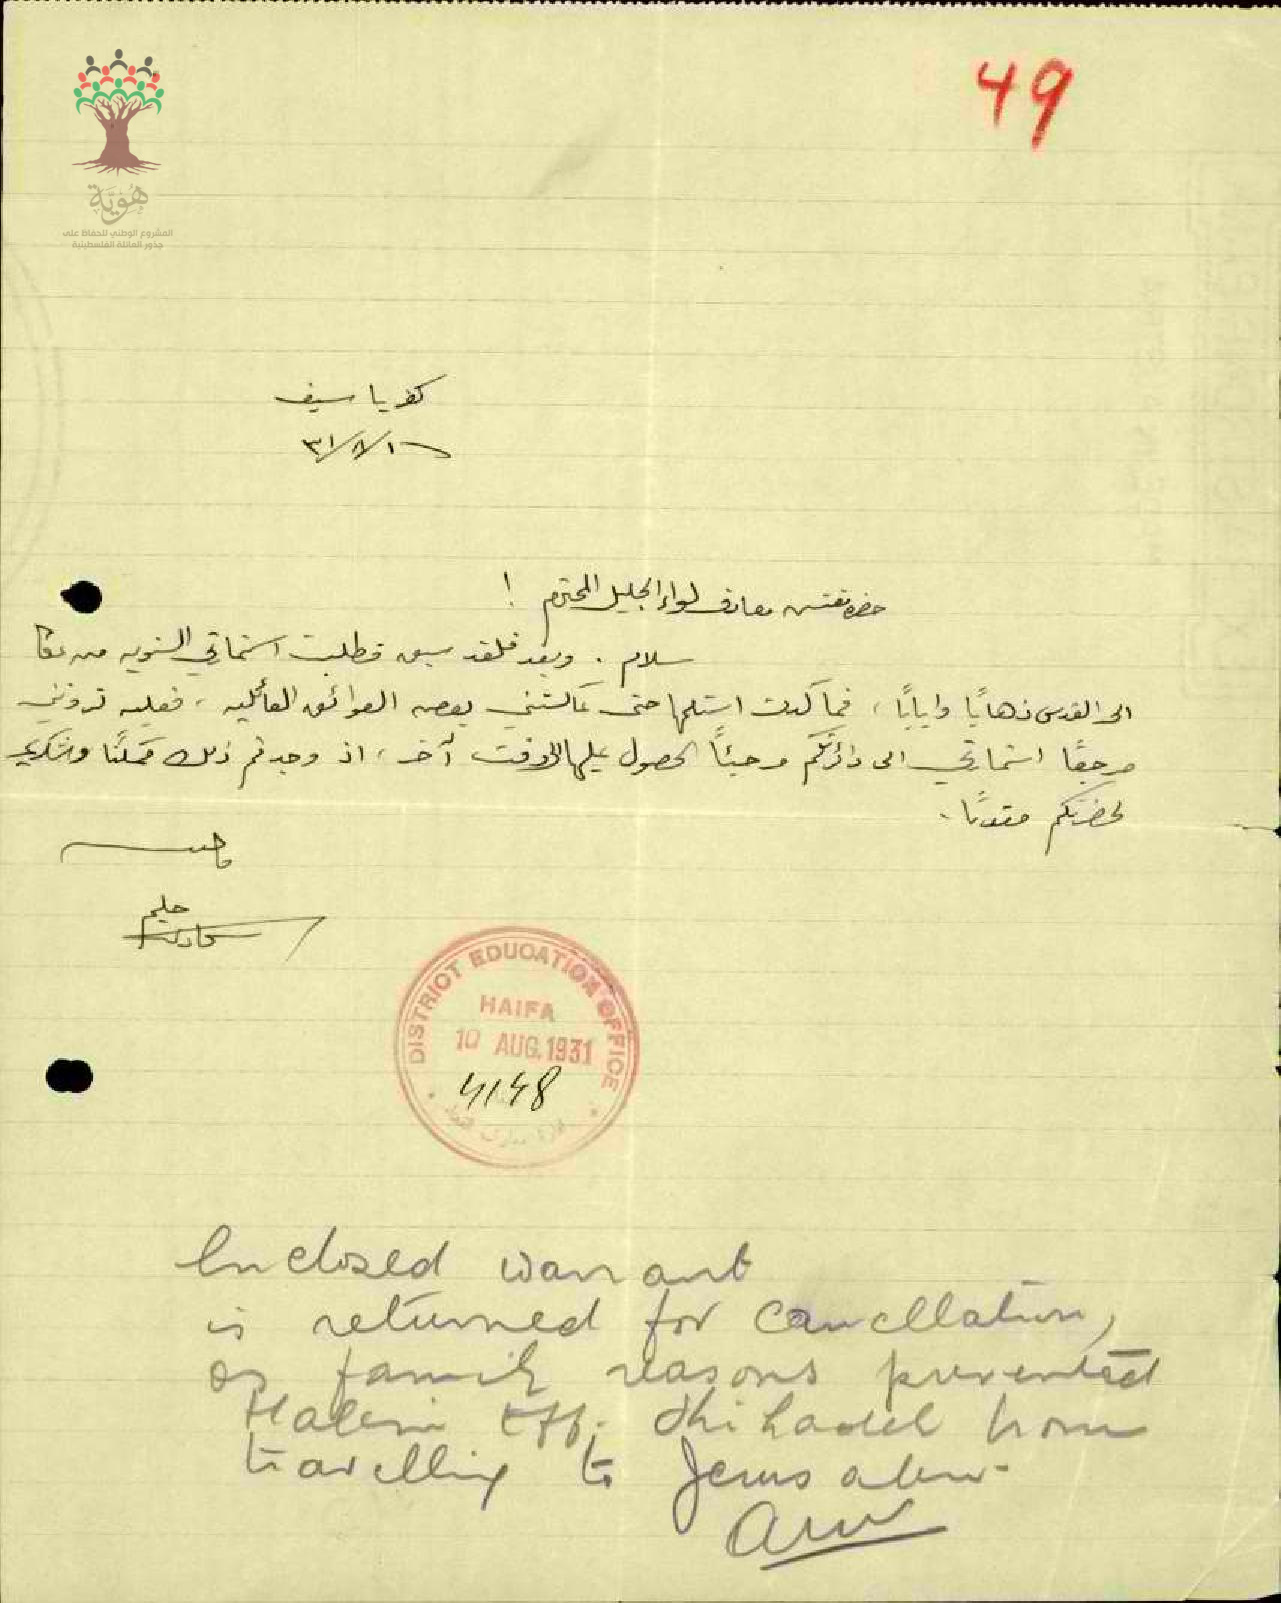 49
هُوِيَّة
المشروع الوطني للحفاظ على
جذور العائلة الفلسطينية
كفر ياسيف
حضرة مفتش معارف لواء الجليل المحترم !
سلام . وبعد فلقد سبق فطلبت استمارتي السنويه من عكا
الى القدس ذهابًا وايابًا ، فما كدت استلمها حتى عاكستني بعض العوائق العائليه ، فعليه تروني
مرجعًا استمارتي الى دائرتكم مرجئًا الحصول عليها لوقت آخر ، اذ وجدتم ذلك ممكنًا واشكر
لحضرتكم مقدمًا .
حليم
شحادة
DISTRICT EDUCATION OFFICE
HAIFA
10 AUG. 1931
4148
Enclosed warrant
is returned for cancellation,
as family reasons prevented
Halim Eff. Shihadeh from
travelling to Jerusalem.